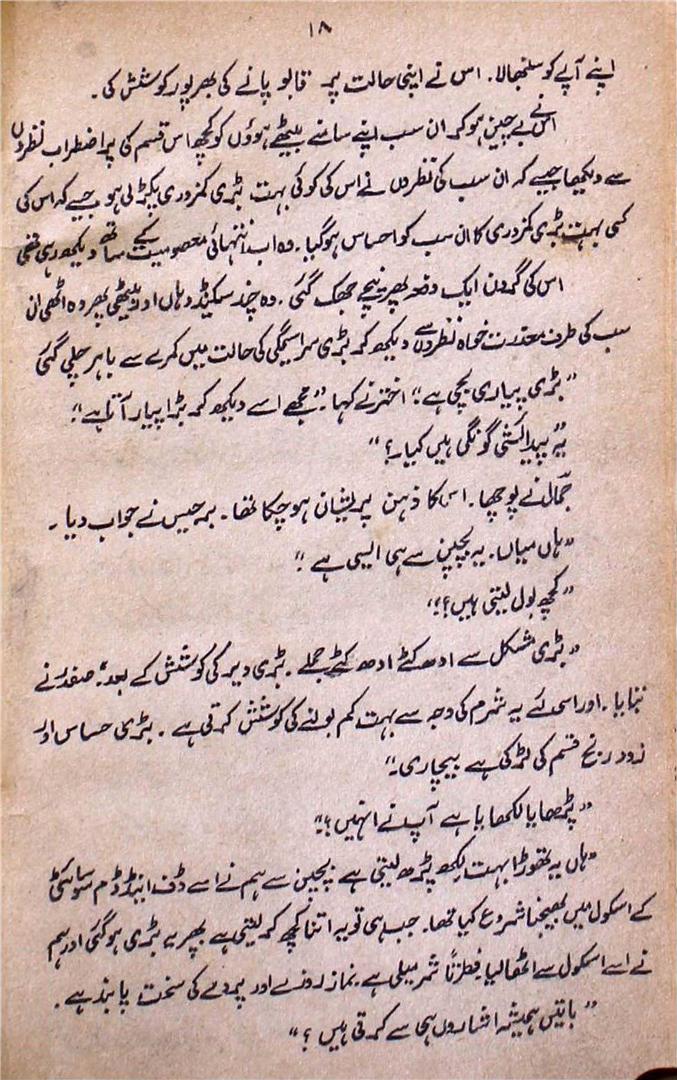 ۱۸
اپنے آپے کو سنبھالا۔ اس نے اپنی حالت پر قابو پانے کی بھرپور کوشش کی۔
اس نے بے چین ہو کر ان سب اپنے سامنے بیٹھے ہوؤں کو کچھ اس قسم کی پُر اضطراب نظروں
سے دیکھا جیسے کہ ان سب کی نظروں نے اس کی کوئی بہت بڑی کمزوری پکڑ لی ہو جیسے کہ اس کی
کسی بہت بڑی کمزوری کا ان سب کو احساس ہو گیا۔ وہ اب انتہائی معصومیت کے ساتھ دیکھ رہی تھی
اس کی گردن ایک دفعہ پھر نیچے جھک گئی۔ وہ چند سکینڈ وہاں اور بیٹھی پھر وہ اٹھی ان
سب کی طرف معذرت خواہ نظروں سے دیکھ کر بڑی سراسیمگی کی حالت میں کمرے سے باہر چلی گئی
"بڑی پیاری بچی ہے" اختر نے کہا۔ "مجھے اسے دیکھ کر بڑا پیار آتا ہے"
"یہ پیدائشی گونگی ہیں کیا۔؟"
جمال نے پوچھا۔ اس کا ذہن پریشان ہو چکا تھا۔ برجیس نے جواب دیا۔
"ہاں میاں۔ یہ بچپن سے ہی ایسی ہے"
"کچھ بول لیتی ہیں؟"
"بڑی مشکل سے ادھ کٹے ادھ کٹے جملے۔ بڑی دیر کی کوشش کے بعد" صفدر نے
بتایا۔ اور اسی لئے یہ شرم کی وجہ سے بہت کم بولنے کی کوشش کرتی ہے۔ بڑی حساس اور
زود رنج قسم کی لڑکی ہے بیچاری۔"
"پڑھایا لکھایا ہے آپ نے انہیں؟"
"ہاں یہ تھوڑا بہت لکھ پڑھ لیتی ہے بچپن سے ہم نے اسے ڈف اینڈ ڈم سوسائٹی
کے اسکول میں بھیجنا شروع کیا تھا۔ جب ہی تو یہ اتنا کچھ کر لیتی ہے پھر یہ بڑی ہو گئی اور ہم
نے اسے اسکول سے اٹھا لیا فطرتاً شرمیلی ہے۔ نماز روزے اور پردے کی سخت پابند ہے۔
"باتیں ہمیشہ اشاروں ہی سے کرتی ہیں؟"